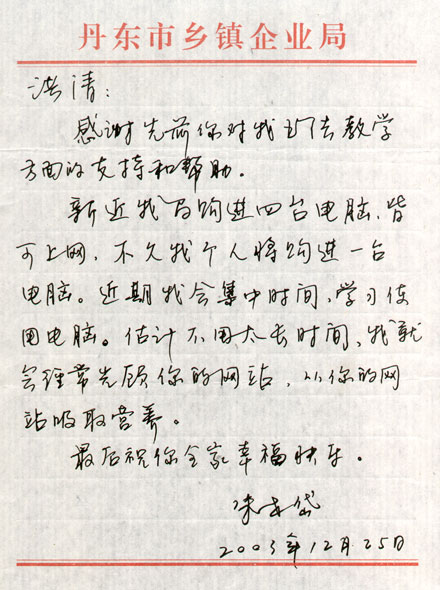 丹东市乡镇企业局
洪清：
感谢先前你对我书法教学
方面的支持和帮助。
新近我局购进四台电脑，皆
可上网，不久我个人将购进一台
电脑。近期我会集中时间，学习使
用电脑。估计不用太长时间，我就
会经常光顾你的网站，从你的网
站吸取营养。
最后祝你全家幸福快乐。
2003年12月25日